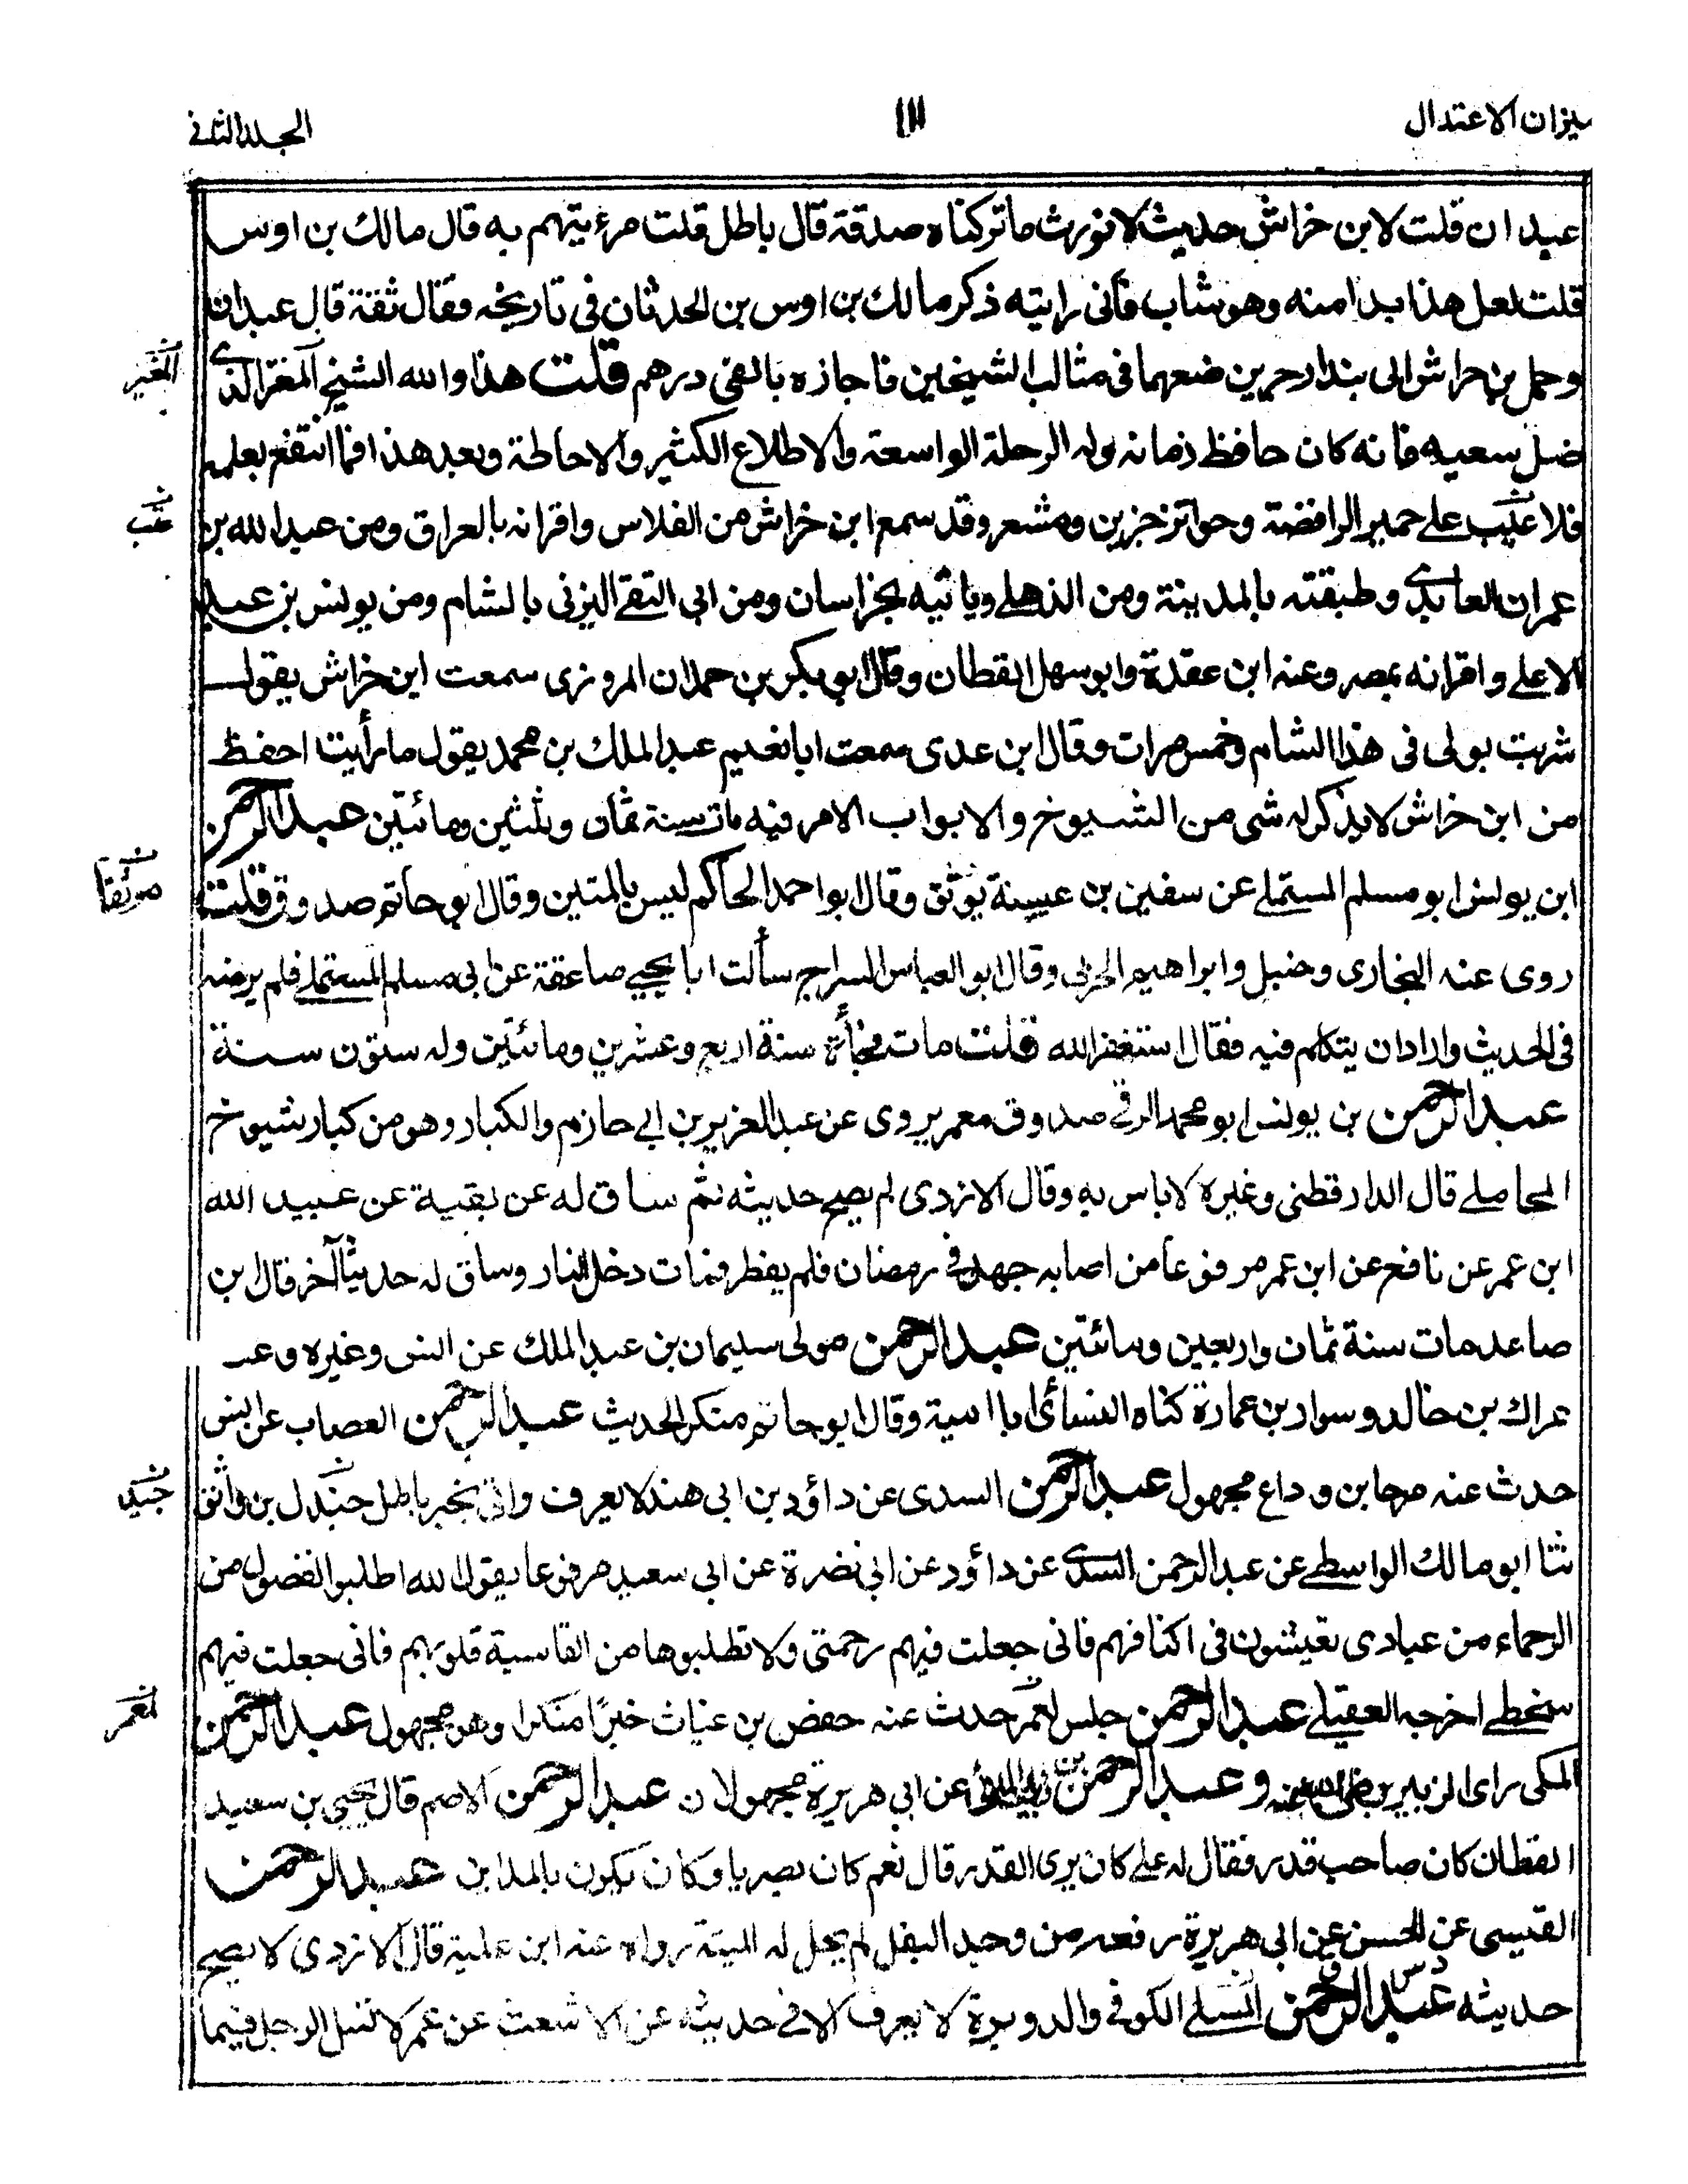 ميزان الاعتدال
١١١
المجلد الثانى
عبدان قلت لابن خراش حديث لا نورث ما تركناه صدقة قال باطل قلت من يتهم به قال مالك بن اوس
قلت لعل هذا بدا منه وهو شاب فانى رايته ذكر مالك بن اوس بن الحدثان فى تاريخه وفقال ثقة قال عبدان
وحمل بن خراش الى بندار جزين ضعهما فى مثالب الشيخين فاجازه بالفى درهم قلت هذا والله الشيخ المغتر الذى
المغير
ضل سعيه فانه كان حافظ زمانه وله الرحلة الواسعة والاطلاع الكثير والاحاطة وبعد هذا فما انتفع بعلمه
فلا عتب على حمير الرافضة وحواتر جزين ومشعر وقد سمع ابن خراش من الفلاس واقرانه بالعراق ومن عبد الله بن
عتب
عمران العابدى وطبقته بالمدينة ومن الذهلى وبابته بخراسان ومن ابى التقى اليزنى بالشام ومن يونس بن عبد
الاعلى واقرانه بمصر وعنه ابن عقدة وابو سهل القطان وقال ابو بكر بن حمدان المروزى سمعت ابن خراش يقول
شربت بولى فى هذا الشام وخمس مرات وقال ابن عدى سمعت ابا نعيم عبد الملك بن محمد يقول ما رأيت احفظ
من ابن خراش لا يذكر له شى من الشيوخ والابواب الا مر فيه مات سنة ثمان وثلثين ومائتين عبد الرحمن
ابن يونس ابو مسلم المستملى عن سفين بن عيينة يوثق وقال ابو احمد الحاكم ليس بالمتين وقال ابو حاتم صدوق قلت
موثقا
روى عنه البخارى وحنبل وابراهيم الحربى وقال ابو العباس السراج سألت ابا يحيى صاعقة عن ابى مسلم المستملى فلم يرضه
فى الحديث واراد ان يتكلم فيه فقال استغفر الله قلت مات فجأة سنة اربع وعشرين ومائتين وله ستون سنة
عبد الرحمن بن يونس ابو محمد الرقى صدوق معمر يروى عن عبد العزيز بن ابى حازم والكبار وهو من كبار شيوخ
المحاملى قال الدارقطنى وغيره لا باس به وقال الازدى لم يصح حديثه ثم ساق له عن بقية عن عبيد الله
ابن عمر عن نافع عن ابن عمر مرفوعا من اصابه جهد فى رمضان فلم يفطر فمات دخل النار وساق له حديثا آخر قال ابن
صاعد مات سنة ثمان واربعين ومائتين عبد الرحمن مولى سليمان بن عبد الملك عن انس وغيره وعنه
عراك بن خالد وسوار بن عمارة كناه النسائى ابا امية وقال ابو حاتم منكر الحديث عبد الرحمن العصاب عن انس
حدث عنه مرجا بن وداع مجهول عبد الرحمن السدى عن داؤد بن ابى هند لا يعرف واتى بخبر باطل جندل بن واثق
جندل
ثنا ابو مالك الواسطى عن عبد الرحمن السدى عن داؤد عن ابى نضرة عن ابى سعيد مرفوعا يقول الله اطلبوا الفضول من
الرحماء من عبادى تعيشون فى اكنافهم فانى جعلت فيهم رحمتى ولا تطلبوها من القاسية قلوبهم فانى جعلت فيهم
سخطى اخرجه العقيلى عبد الرحمن جليس لعمر حدث عنه حفص بن غياث خبرا منكرا وهو مجهول عبد الرحمن
لعمر
المكى راى الزبير رضى الله عنه وعبد الرحمن عن ابى هريرة مجهولان عبد الرحمن الاصم قال يحيى بن سعيد
القطان كان صاحب قدر فقال له على كان يرى القدر قال نعم كان بصريا وكان يكون بالمداين عبد الرحمن
القيسى عن الحسن عن ابى هريرة رفعه من وجد البقل لم يحل له الميتة رواه عنه ابن علية قال الازدى لا يصح
حديثه عبد الرحمن المسلى الكوفى والد وبرة لا يعرف الا فى حديثه عن الاشعث عن عمر لا تسل الرجل فيما